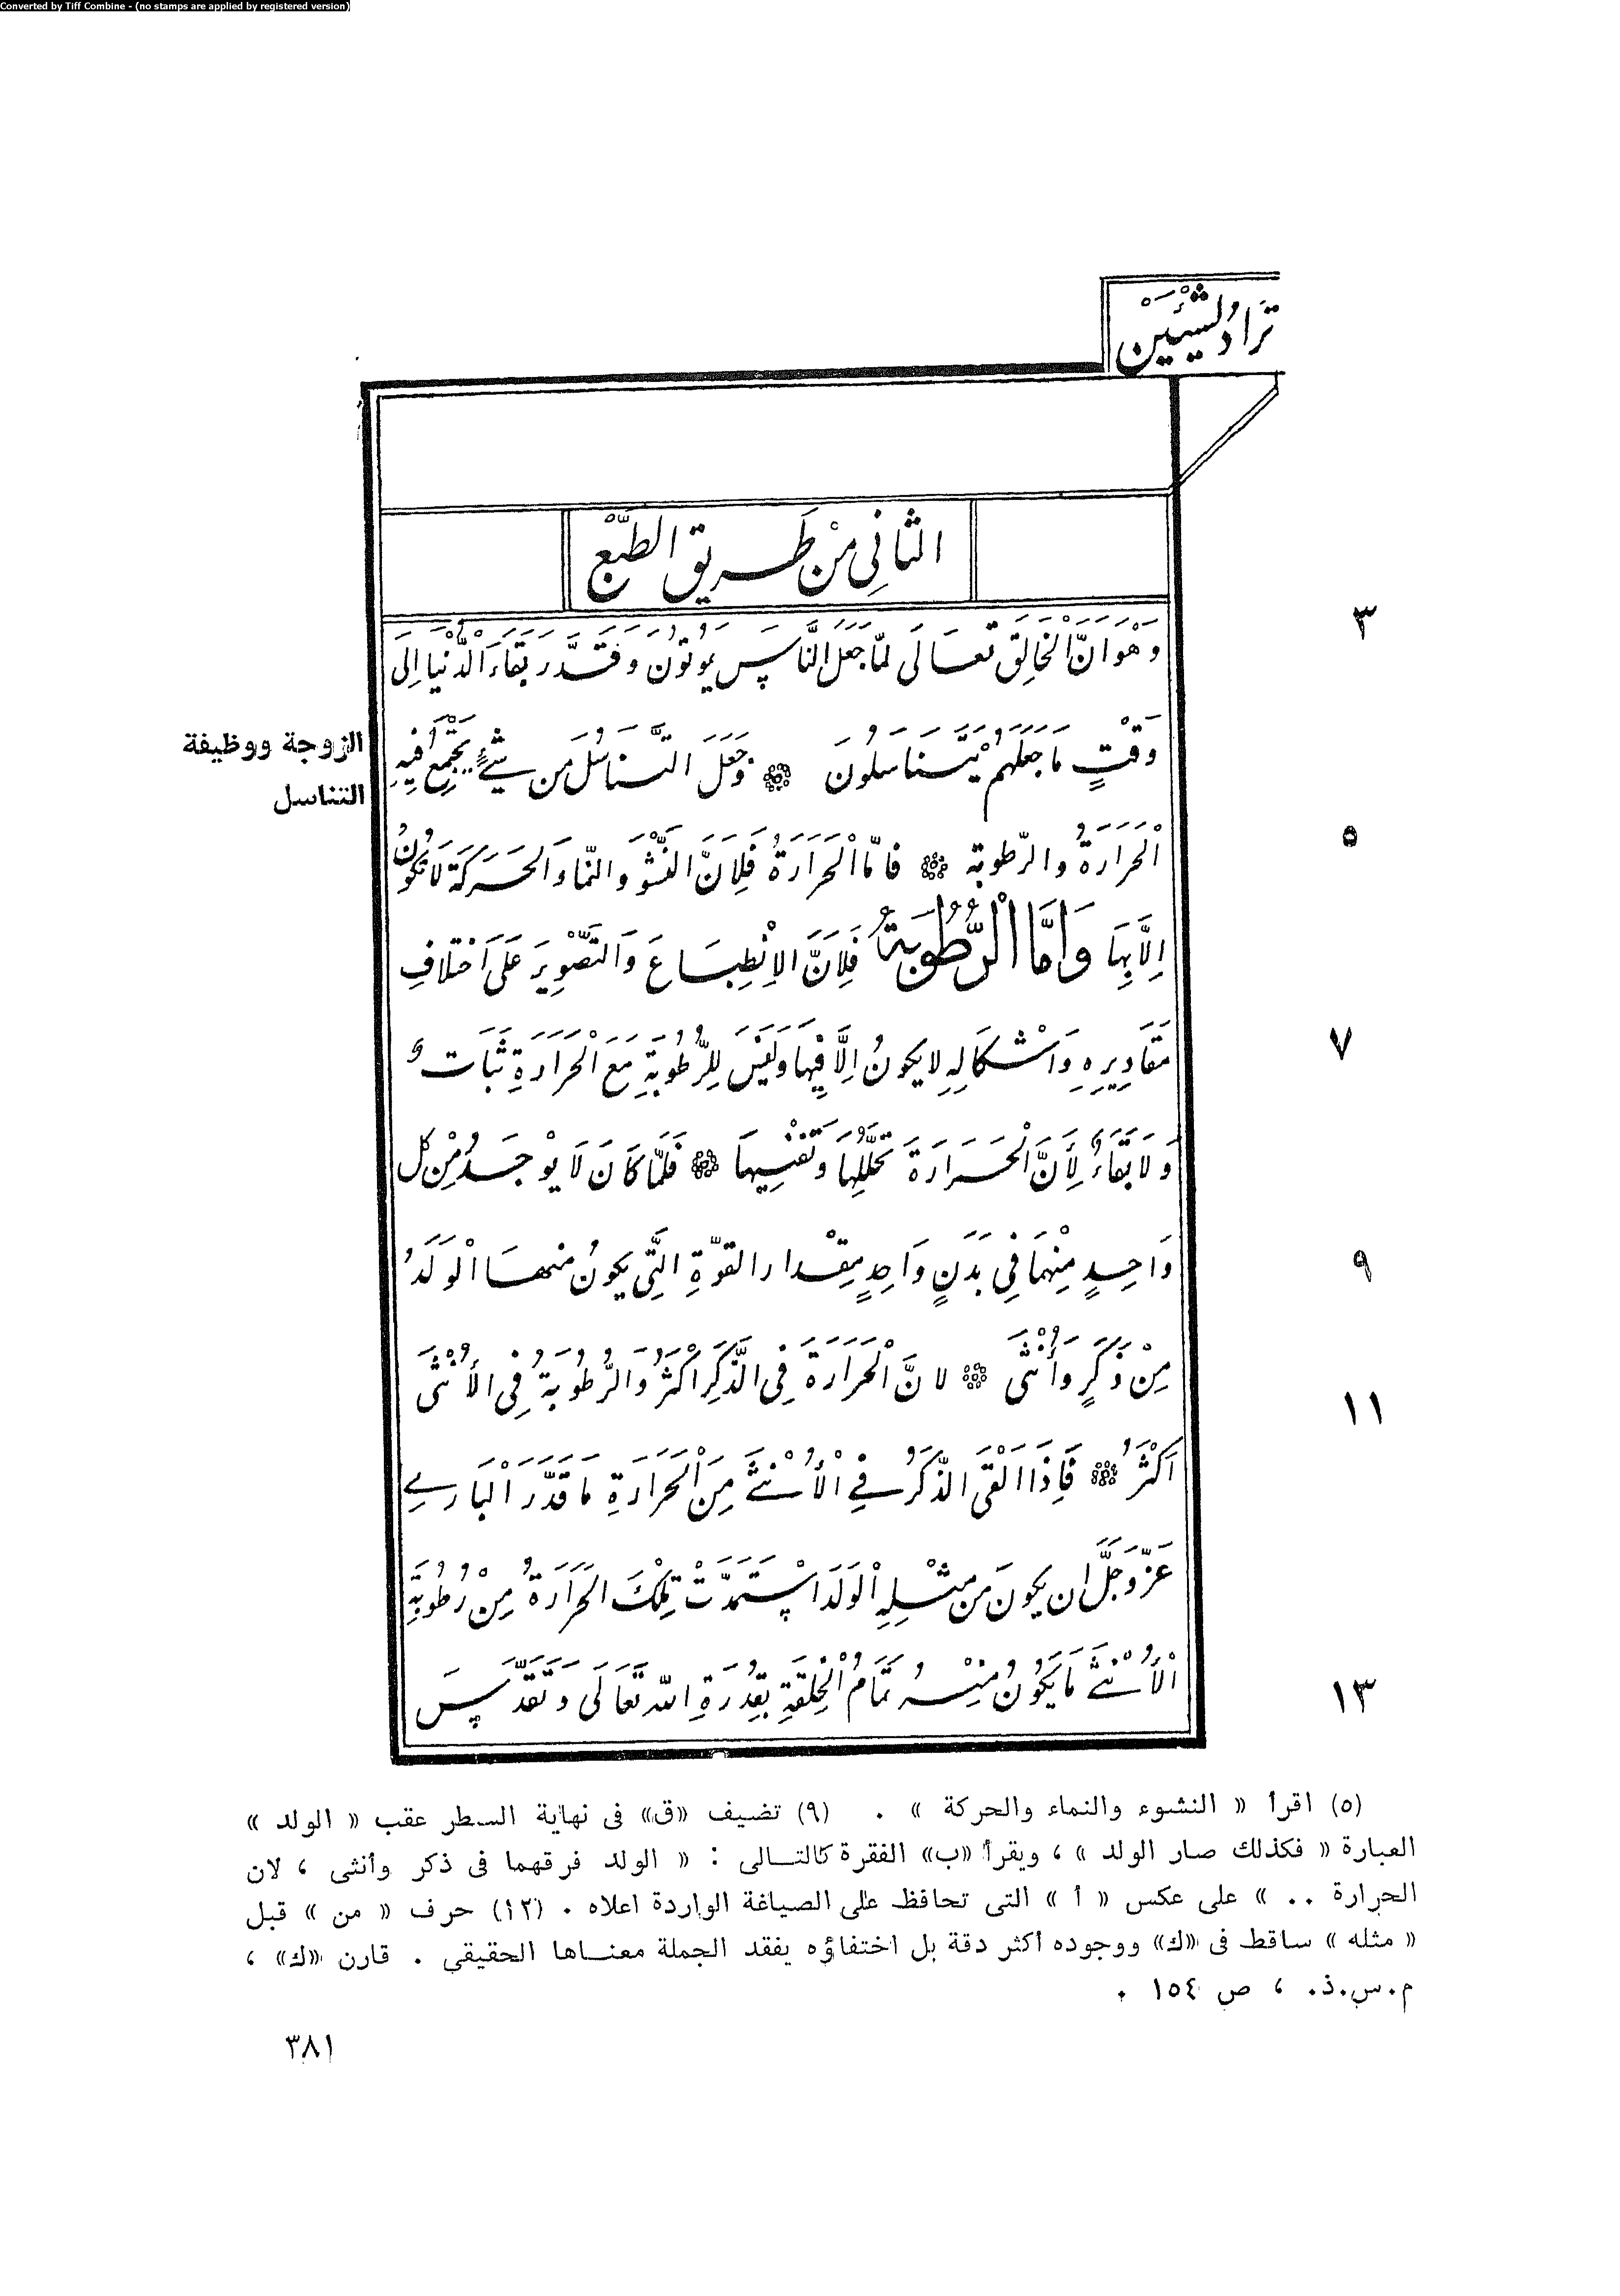 Converted by Tiff Combine - (no stamps are applied by registered version)
تُرَادُ لِشَيْئَيْنْ
الثانِي مِنْ طَرِيقِ الطَّبْعْ
٣
وَهْوَ اَنَّ الْخَالِقَ تَعَالَى لمَّا جَعَل النَّاسَ يَمُوتُونَ وَقَدَّرَ بَقَاءَ الدُّنْيَا اِلى
وَقْتٍ مَا جَعَلَهُمْ يَتَنَاسَلُونَ ۞ وَجَعَلَ التَّنَاسُلَ مِن شَيْءٍ يَجْتَمِعُ فِيْهِ
الزوجة ووظيفة
التناسل
٥
الْحَرَارَةُ والرّطوبَة ۞ فَامّا الْحَرَارَةُ فَلِاَنَّ النّشْوَ والنّمَا وَالحَرَكَةَ لَا تكُونُ
اِلَّا بِهَا وَاَمَّا الْرُّطُوبَةُ فَلِاَنَّ الاِنْطِبَاعَ وَالتَّصْوِيرَ عَلَى اخْتلافِ
٧
مَقَادِيرِهِ وَاَشْكَالِهِ لا يكونُ اِلَّا فِيْهَا وَلَيْسَ لِلرُّطُوبَةِ مَعَ الْحَرَارَةِ ثَبَات
وَلَا بَقَاءٌ لِأَنَّ الْحَرَارَةَ تُحَلِّلُهَا وَتُفْنِيهَا ۞ فَلَمَّا كَانَ لَا يُوْجَدُ مِنْ كل
٩
وَاحِدٍ مِنْهُمَا فِي بَدَنٍ وَاحِدٍ مِقْدار القوَّةِ الَّتِي يكونُ منهَا الْوَلَدُ
مِنْ ذَكَرٍ وَأُنْثَى ۞ لانَّ الْحَرَارَةَ فِي الذَّكَرِ اَكْثَرُ وَالرُّطُوبَةُ فِي الأُنْثَى
١١
اَكْثَرُ ۞ فَاِذَا اَلْقَى الذّكَرُ فِي الْأُنْثَى مِنَ الْحَرَارَةِ مَا قَدَّرَ الْبَارِي
عَزَّ وَجَلَّ ان يكونَ مِن مِثْلِهِ الْوَلَدَ اسْتَمَدَّتْ تِلْكَ الحَرَارَةُ مِنْ رُطُوبَةِ
١٣
الْأُنْثَى مَا يَكُونُ مِنْهُ تَمَامُ الْخِلقَةِ بِقُدْرَةِ اللّه تَعَالَى وَتَقَدَّسَ
(٥) اقرأ « النشوء والنماء والحركة » . (٩) تضيف «ق» فى نهاية السطر عقب « الولد »
العبارة « فكذلك صار الولد » ، ويقرأ «ب» الفقرة كالتالى : « الولد فرقهما فى ذكر وأنثى ، لان
الحرارة .. » على عكس « أ » التى تحافظ على الصياغة الواردة اعلاه . (١٢) حرف « من » قبل
« مثله » ساقط فى «ك» ووجوده أكثر دقة بل اختفاؤه يفقد الجملة معناها الحقيقى . قارن «ك» ،
م.س.ذ. ، ص ١٥٤ .
٣٨١